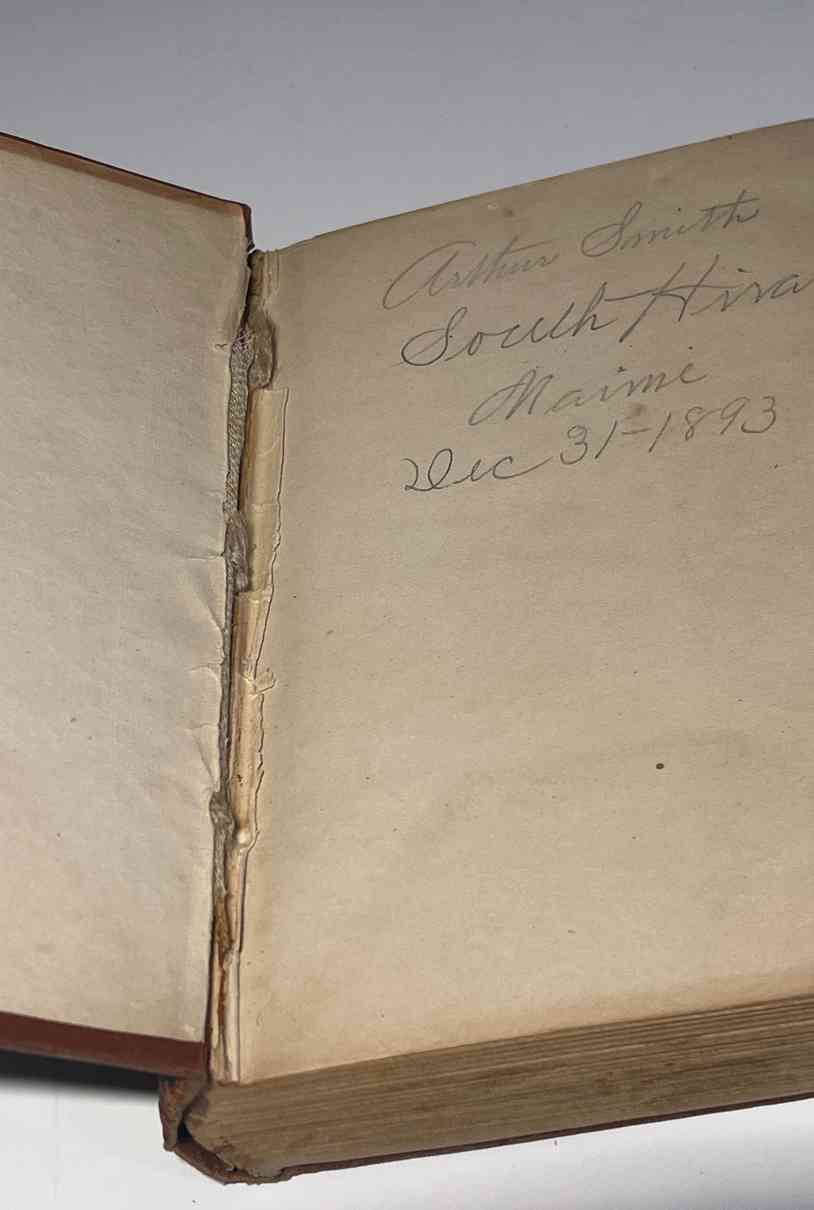 Arthur Smith
South Hira
Maine
Dec 31-1893